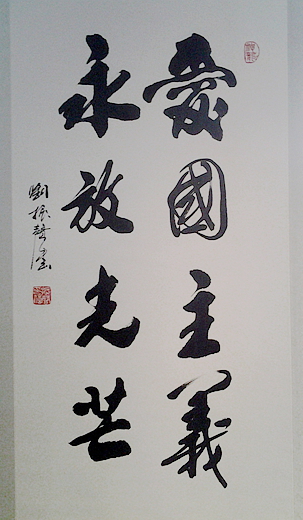 愛國主義
永放光芒
劉振